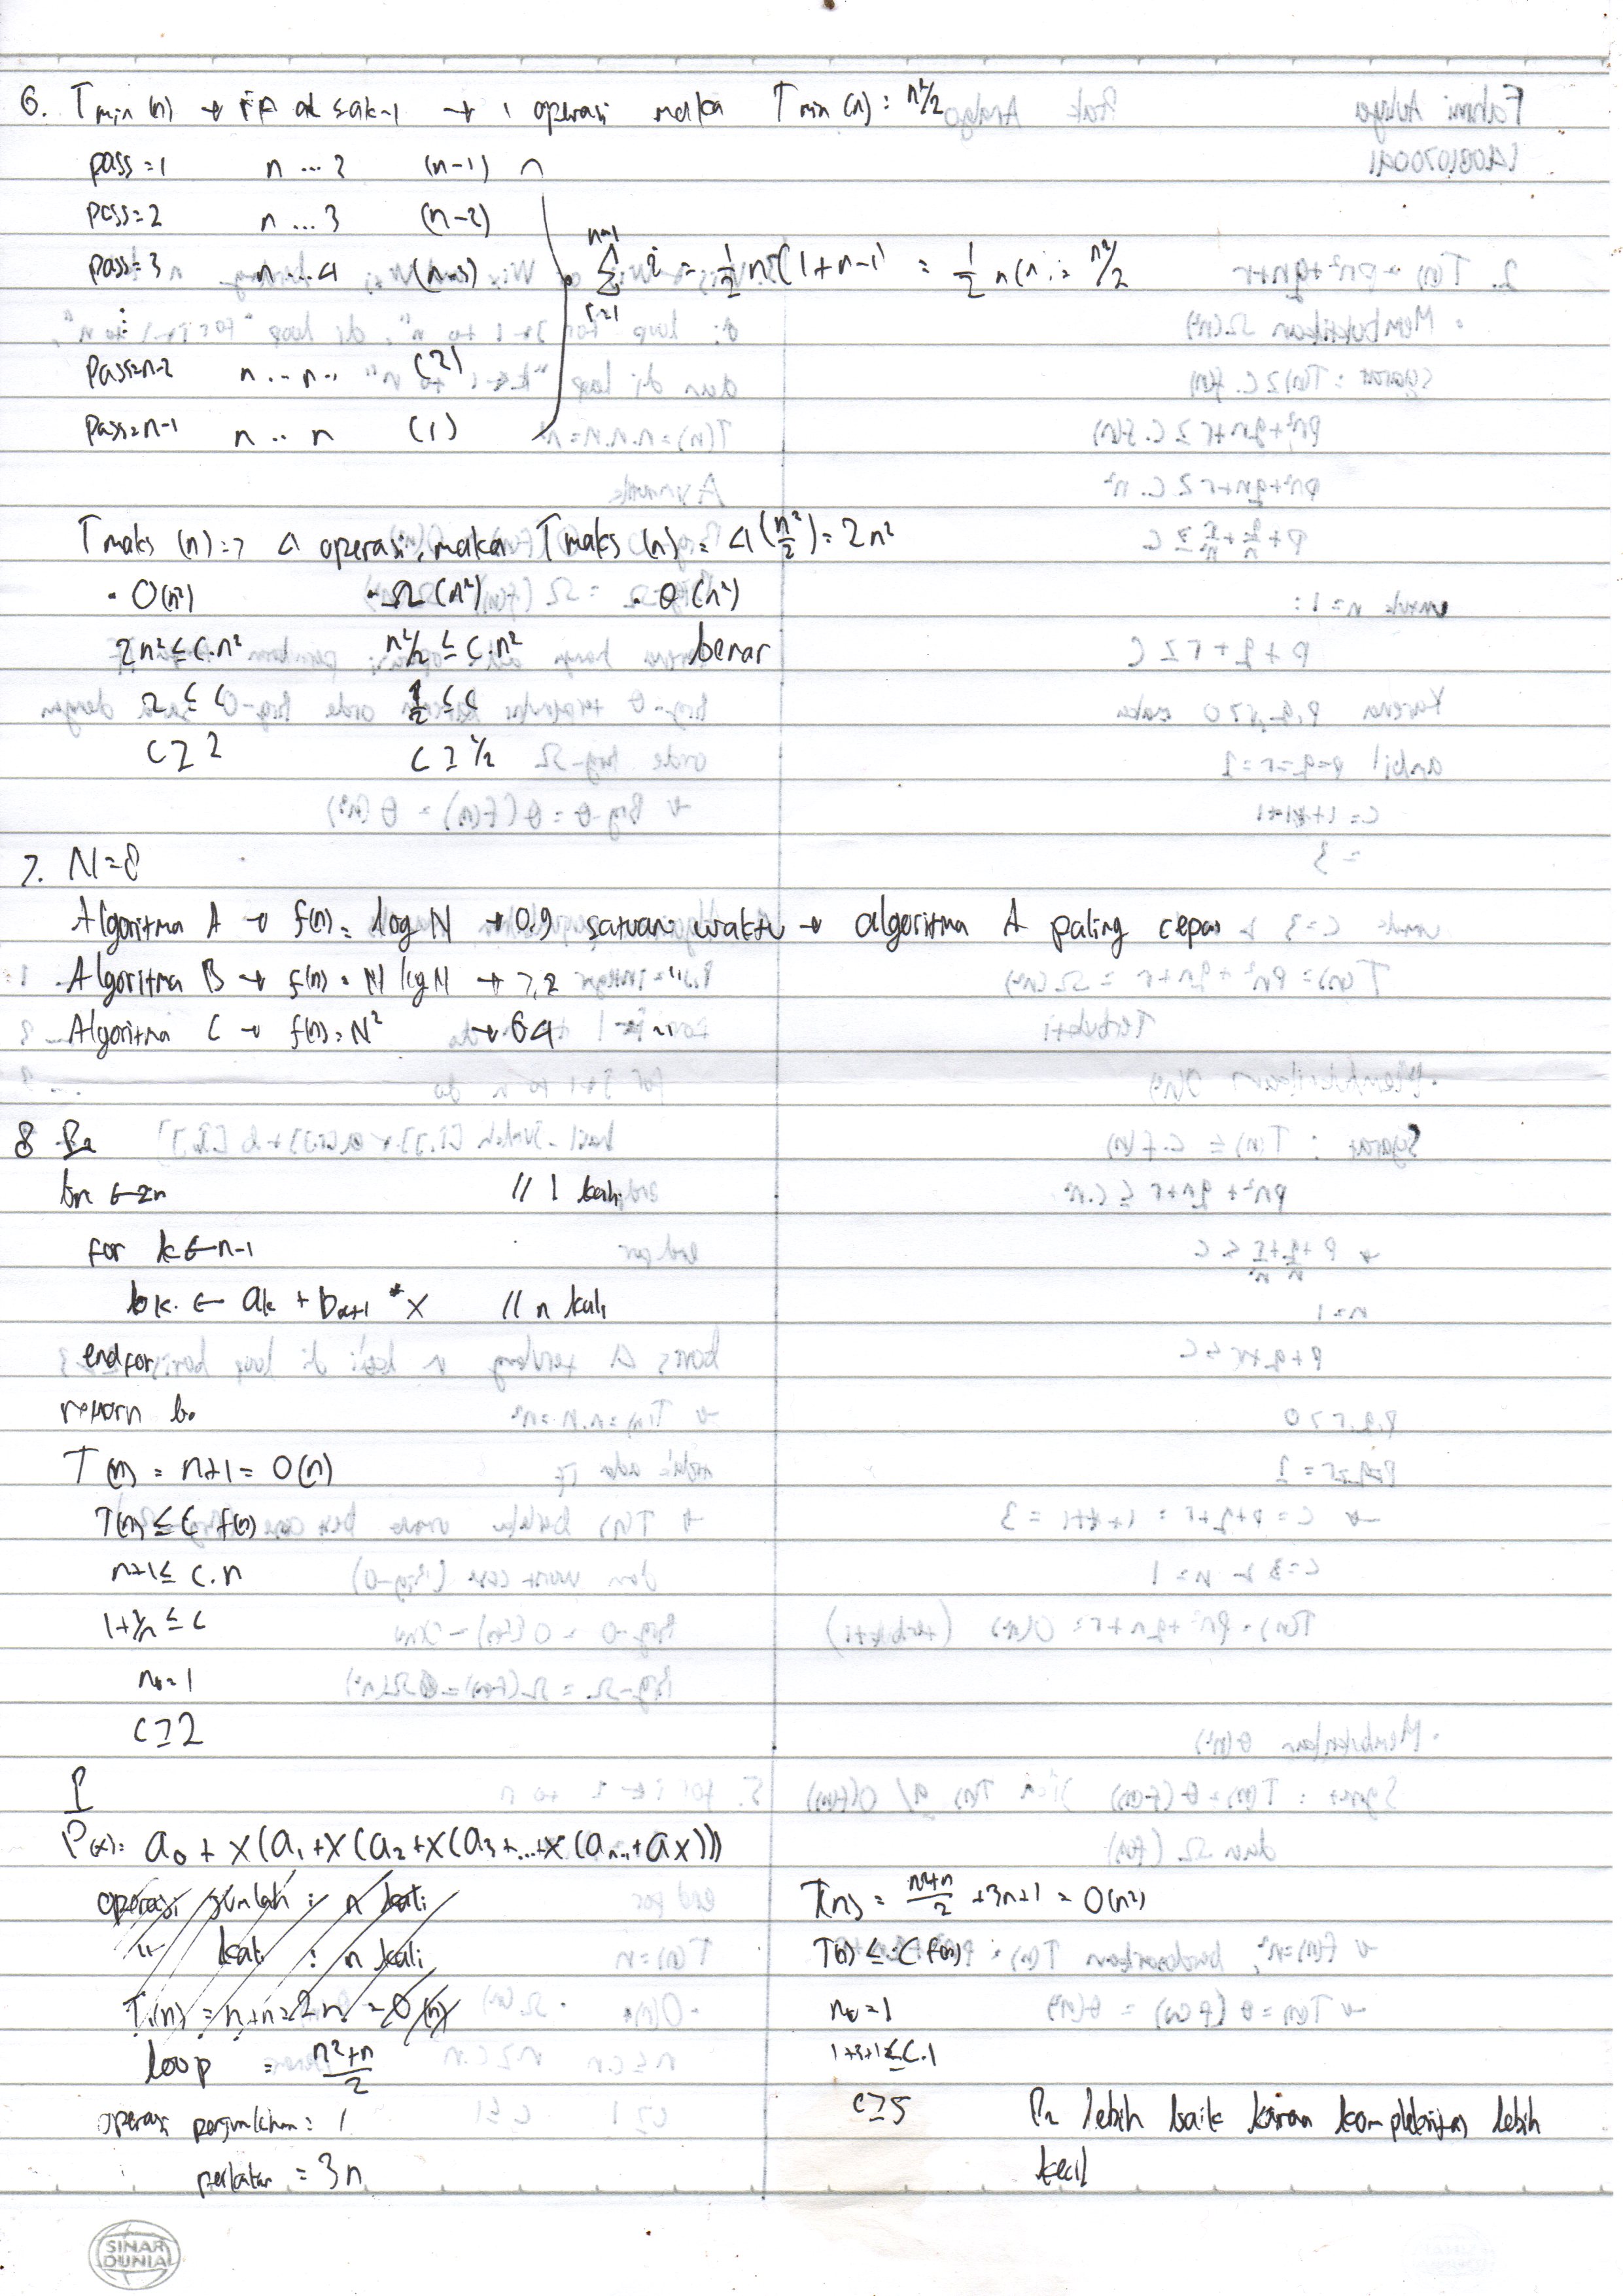 6. Tmin (n) → if → 1 operasi maka Tmin (n) : n²/2
pass = 1 n ... 2 (n-1)
pass = 2 n ... 3 (n-2)
pass = 3 n ... 4 (n-3)
⋮
pass = n-2 n ... n-1 (2)
pass = n-1 n .. n (1)
n-1 ∑ i=1 i = 1/2 n (1+n-1) = 1/2 n(n) = n²/2
Tmaks (n) => 4 operasi, maka Tmaks (n) = 4(n²/2) = 2n²
• O(n²) • Ω(n²) • θ(n²)
2n² ≤ C.n² n²/2 ≤ C.n² benar
2 ≤ C 1/2 ≤ C
C ≥ 2 C ≥ 1/2
7. N = 8
Algoritma A → f(n) = log N → 0,9 satuan waktu → algoritma A paling cepat
Algoritma B → f(n) = N log N → 7,2 "
Algoritma C → f(n) = N² → 64 "
8 P2
bn ← an // 1 kali
for k ← n-1
bk ← ak + bk+1 * x // n kali
endfor
return b0
T(n) = n+1 = O(n)
T(n) ≤ C f(n)
n+1 ≤ C.n
1+1/n ≤ C
n0 = 1
C ≥ 2
P
P(x) = a0 + x(a1 + x(a2 + x(a3 + ... + x(an-1 + ax)))
operasi jumlah : n kali
" kali : n kali
T(n) = n+n = 2n = O(n)
loop = n²+n/2
operasi penjumlahan = 1
perkalian = 3n
T(n) = n²+n/2 + 3n+1 = O(n²)
T(n) ≤ C f(n)
n0 = 1
1+3+1 ≤ C.1
C ≥ 5
P2 lebih baik karena kompleksitas lebih
kecil
SINAR
DUNIA